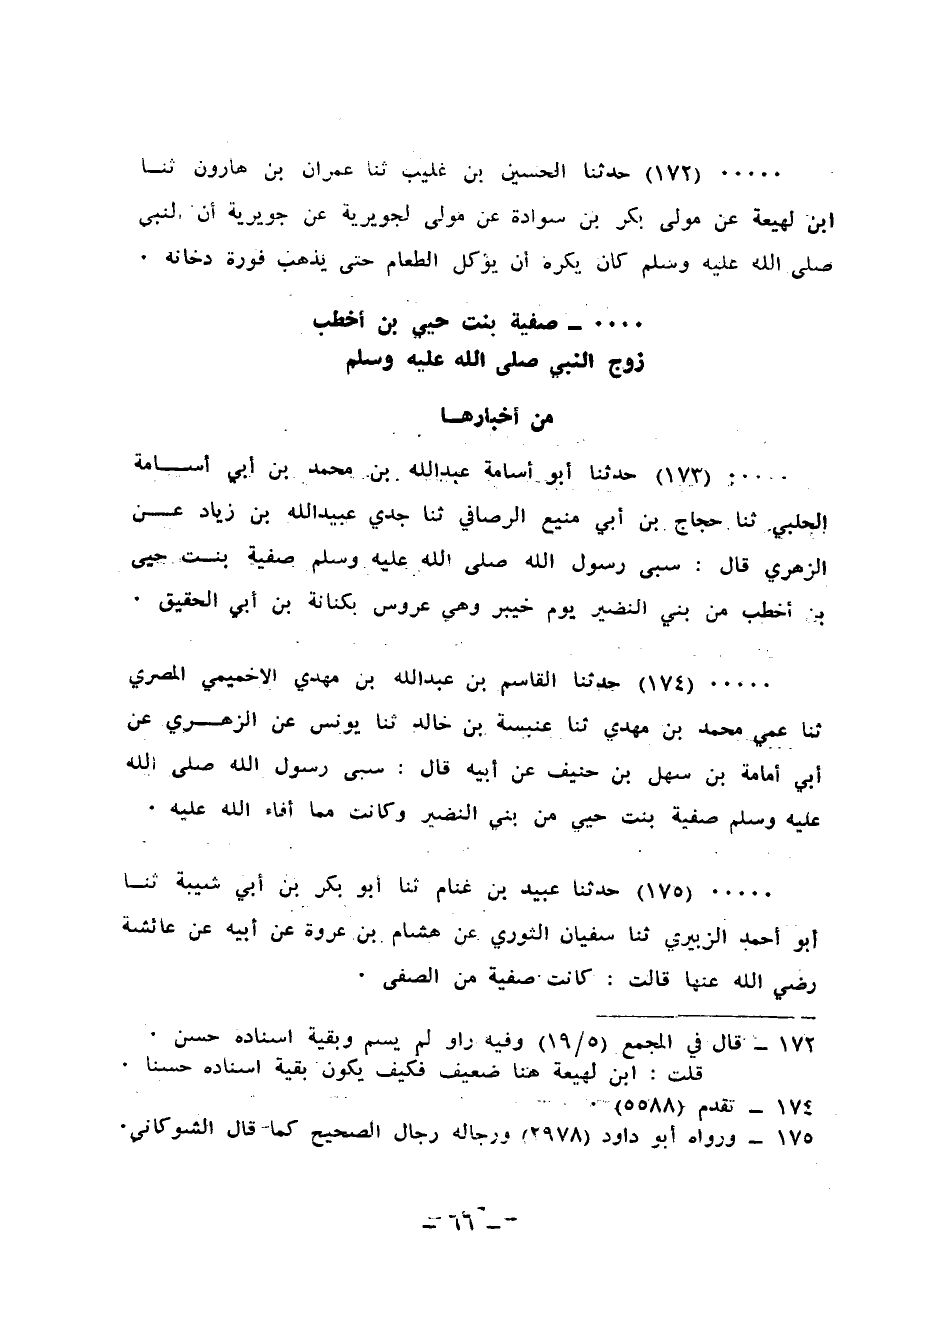 ٠٠٠٠٠ (١٧٢) حدثنا الحسين بن غليب ثنا عمران بن هارون ثنا
ابن لهيعة عن مولى بكر بن سوادة عن مولى لجويرية عن جويرية أن النبي
صلى الله عليه وسلم كان يكره أن يؤكل الطعام حتى يذهب فورة دخانه ٠
٠٠٠٠ ـ صفية بنت حيي بن أخطب
زوج النبي صلى الله عليه وسلم
من أخبارها
٠٠٠٠٠ (١٧٣) حدثنا أبو أسامة عبدالله بن محمد بن أبي أسامة
الحلبي ثنا حجاج بن أبي منيع الرصافي ثنا جدي عبيدالله بن زياد عن
الزهري قال : سبى رسول الله صلى الله عليه وسلم صفية بنت حيى
بن أخطب من بني النضير يوم خيبر وهي عروس بكنانة بن أبي الحقيق ٠
٠٠٠٠٠ (١٧٤) حدثنا القاسم بن عبدالله بن مهدي الاخميمي المصري
ثنا عمي محمد بن مهدي ثنا عنبسة بن خالد ثنا يونس عن الزهري عن
أبي أمامة بن سهل بن حنيف عن أبيه قال : سبى رسول الله صلى الله
عليه وسلم صفية بنت حيي من بني النضير وكانت مما أفاء الله عليه ٠
٠٠٠٠٠ (١٧٥) حدثنا عبيد بن غنام ثنا أبو بكر بن أبي شيبة ثنا
أبو أحمد الزبيري ثنا سفيان الثوري عن هشام بن عروة عن أبيه عن عائشة
رضي الله عنها قالت : كانت صفية من الصفى ٠
١٧٢ ـ قال في المجمع (١٩/٥) وفيه راو لم يسم وبقية اسناده حسن ٠
قلت : ابن لهيعة هنا ضعيف فكيف يكون بقية اسناده حسنا ٠
١٧٤ ـ تقدم (٥٥٨٨) ٠
١٧٥ ـ ورواه أبو داود (٢٩٧٨) ورجاله رجال الصحيح كما قال الشوكاني ٠
ـ ٦٦ ـ